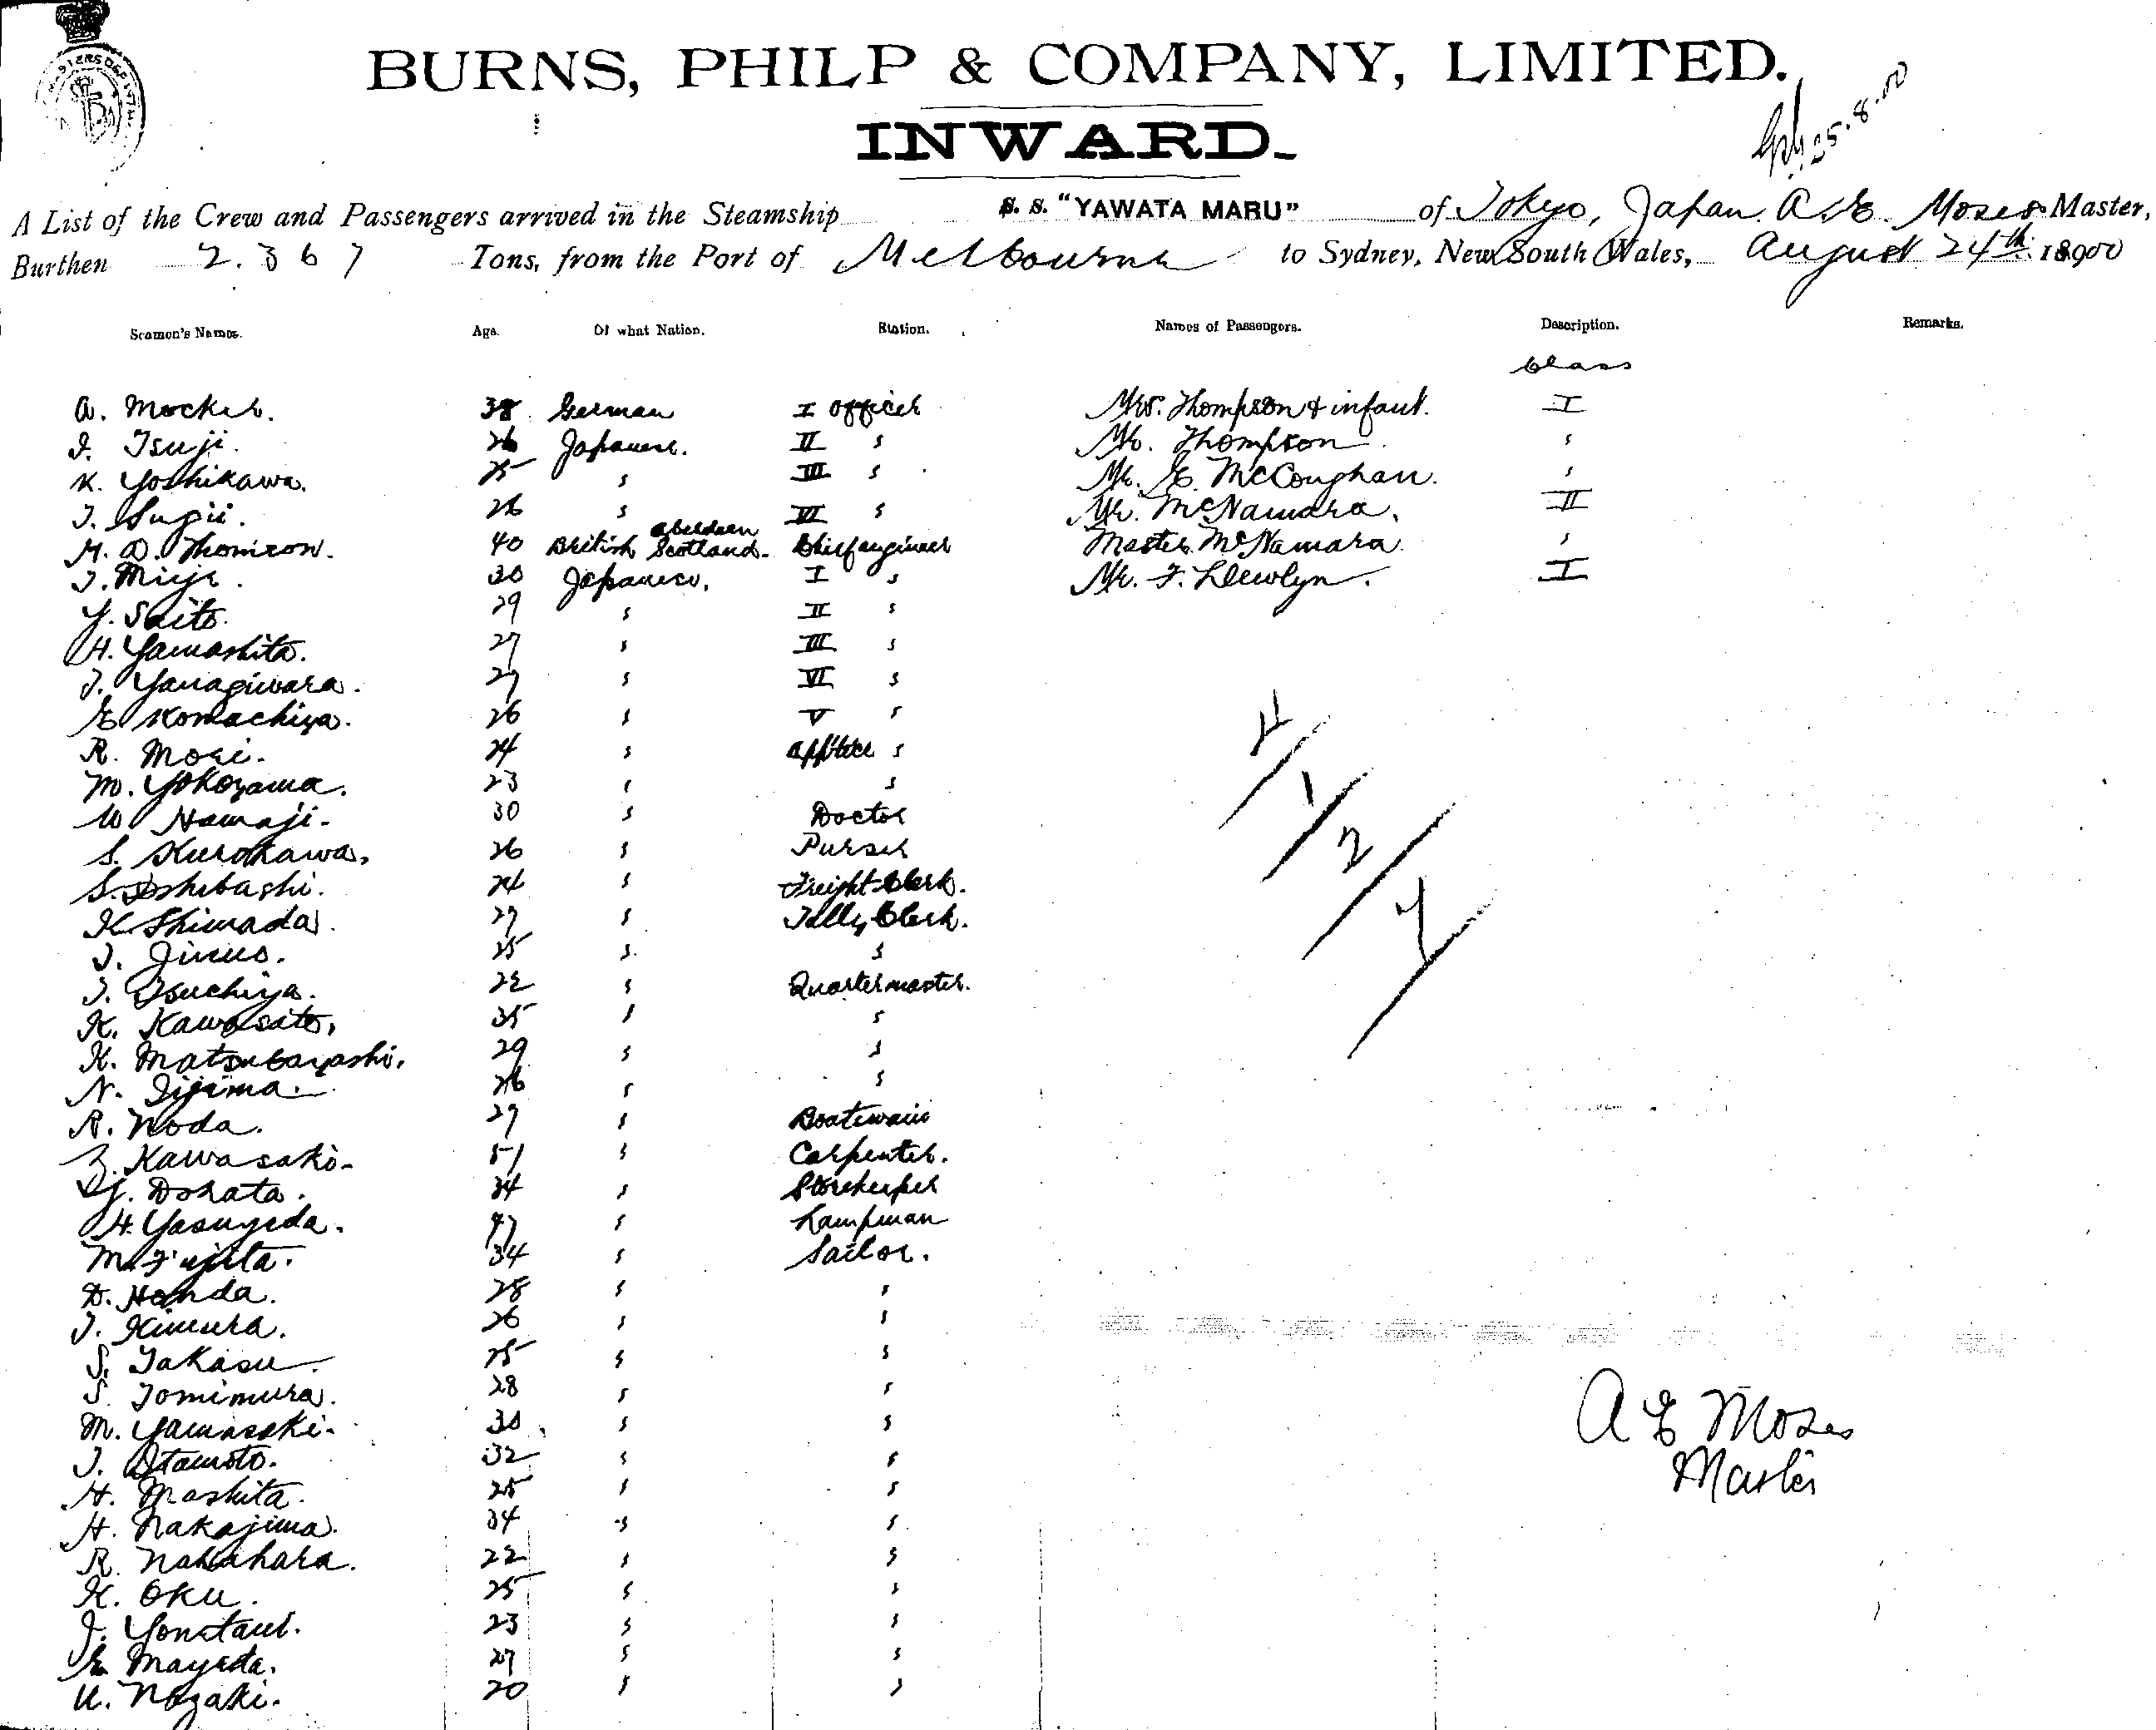 BURNS, PHILP & COMPANY, LIMITED.
25.8.00
INWARD.
A List of the Crew and Passengers arrived in the Steamship S. S. "YAWATA MARU" of Tokyo, Japan. A. E. Moses Master,
Burthen 2.367 Tons, from the Port of Melbourne to Sydney, New South Wales, August 24th 18900
Seamen's Names. Age. Of what Nation. Station. Names of Passengers. Description. Remarks.
Class
A. Mocker. 38 German I officer Mrs. Thompson & infant. I
I. Tsuji. 26 Japanese. II " Mr. Thompson "
K. Yoshikawa. 25 " III " Mr. E. McCoughan. "
T. Sugii. 26 " VI " Mr. McNamara. II
M. D. Thomson. 40 British Aberdeen Scotland. Chief engineer Master McNamara. "
T. Miyi. 30 Japanese. I " Mr. F. Llewlyn. I
Y. Saito. 29 " II "
H. Yamashita. 27 " III "
T. Yanagiwara. 27 " VI "
E. Komachiya. 26 " V "
R. Mori. 24 " app'tice "
M. Yokoyama. 23 " "
W. Hamaji. 30 " Doctor
S. Kurokawa. 26 " Purser
S. Ishibashi. 24 " Freight Clerk.
K. Shimada. 27 " Tally Clerk.
T. Jinus. 25 " "
T. Tsuchiya. 22 " Quartermaster.
K. Kawasato. 35 " "
K. Matsubayashi. 29 " "
N. Iijima. 26 " "
R. Noda. 27 " Boatswain
Z. Kawasaki. 51 " Carpenter.
Y. Dohata. 34 " Storekeeper
H. Yasuyeda. 47 " Lampman
M. Fujita. 34 " Sailor.
D. Honda. 28 " "
T. Kimura. 26 " "
S. Takasu. 25 " "
S. Tomimura. 28 " "
M. Yamasaki. 30 " "
A E Moses
Master
T. Otamoto. 32 " "
H. Mashita. 25 " "
H. Nakajima. 34 " "
R. Nakahara. 22 " "
K. Oku. 25 " "
23 " "
E. Mayeda. 27 " "
U. Nozaki. 20 " "